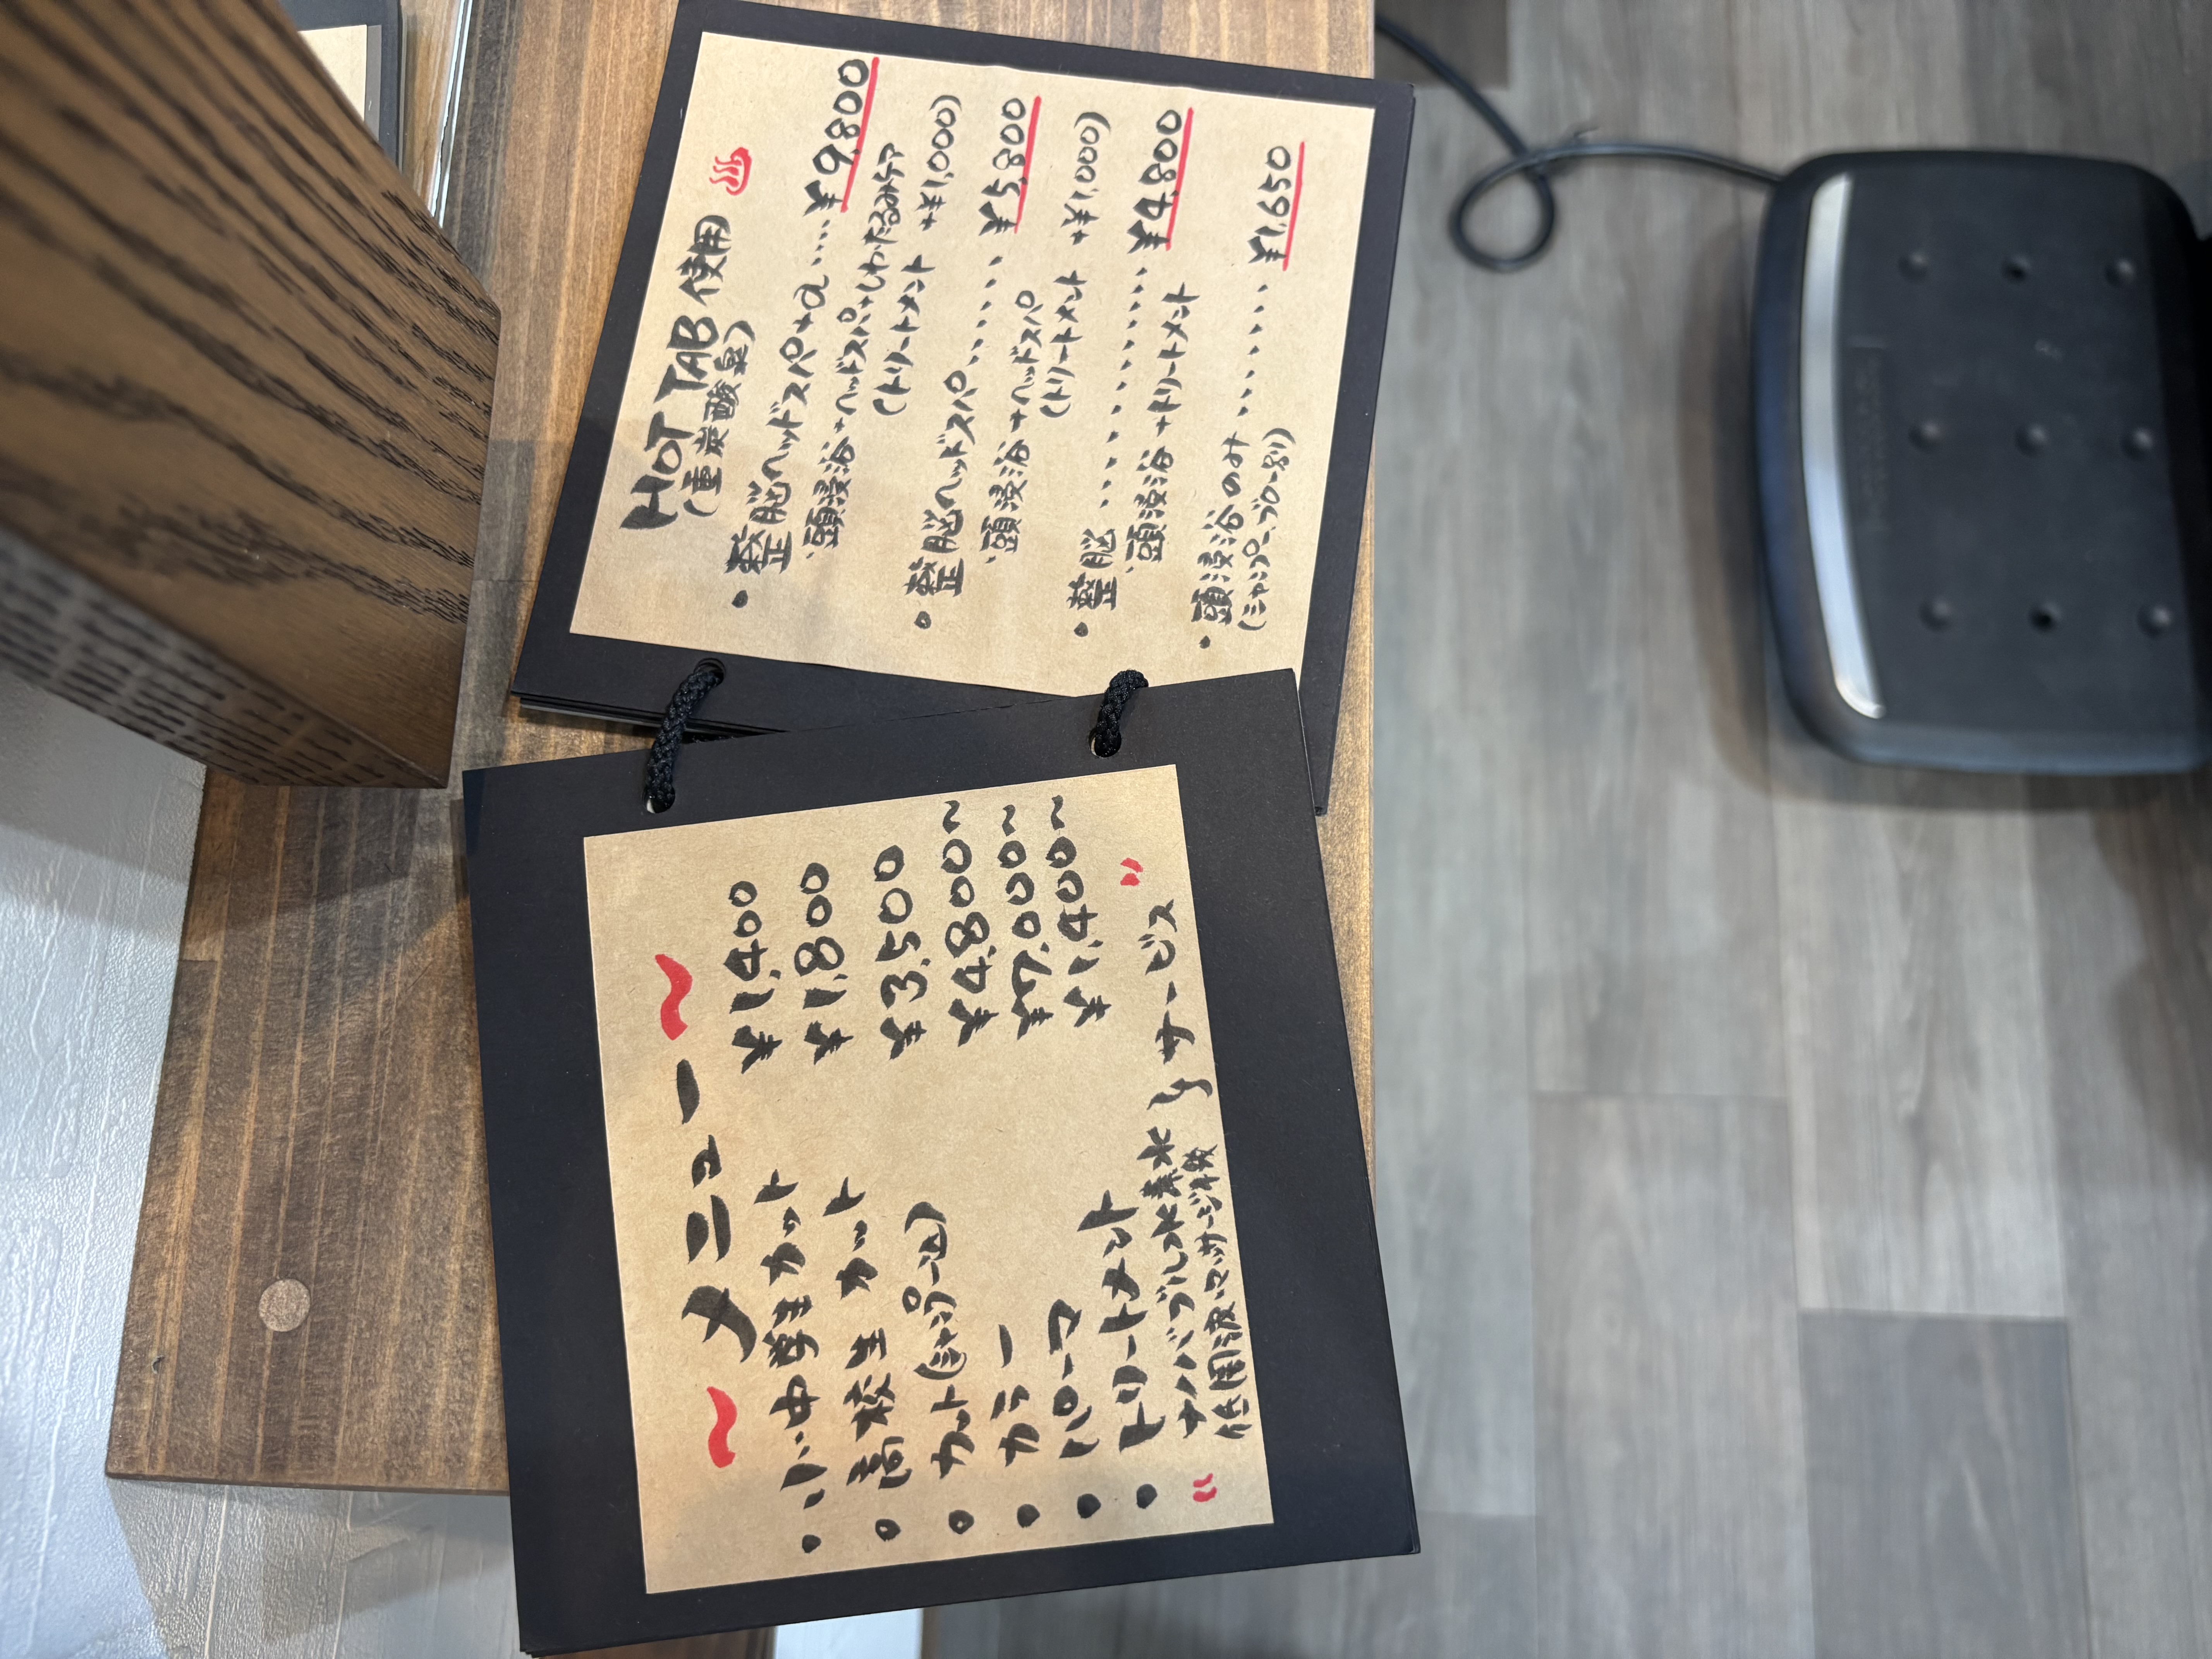 〜 メニュー 〜
• 小・中学生カット ¥1,400
• 高校生 カット ¥1,800
• カット(シャンプー込) ¥3,500
• カラー ¥4,800〜
• パーマ ¥7,000〜
• トリートメント ¥1,400〜
〃 ナノバブル水素水
低周波マッサージ機 } サービス 〃
HOT TAB 使用 ♨
(重炭酸泉)
• 整脳ヘッドスパ+α ‥‥ ¥9,800
・頭浸浴+ヘッドスパ+しわたるみケア
(トリートメント +¥1,000)
• 整脳ヘッドスパ ‥‥‥ ¥5,800
・頭浸浴+ヘッドスパ
(トリートメント +¥1,000)
• 整脳 ‥‥‥‥‥‥‥ ¥4,800
・頭浸浴+トリートメント
• 頭浸浴のみ ‥‥‥‥‥ ¥1,650
(シャンプー、ブロー別)